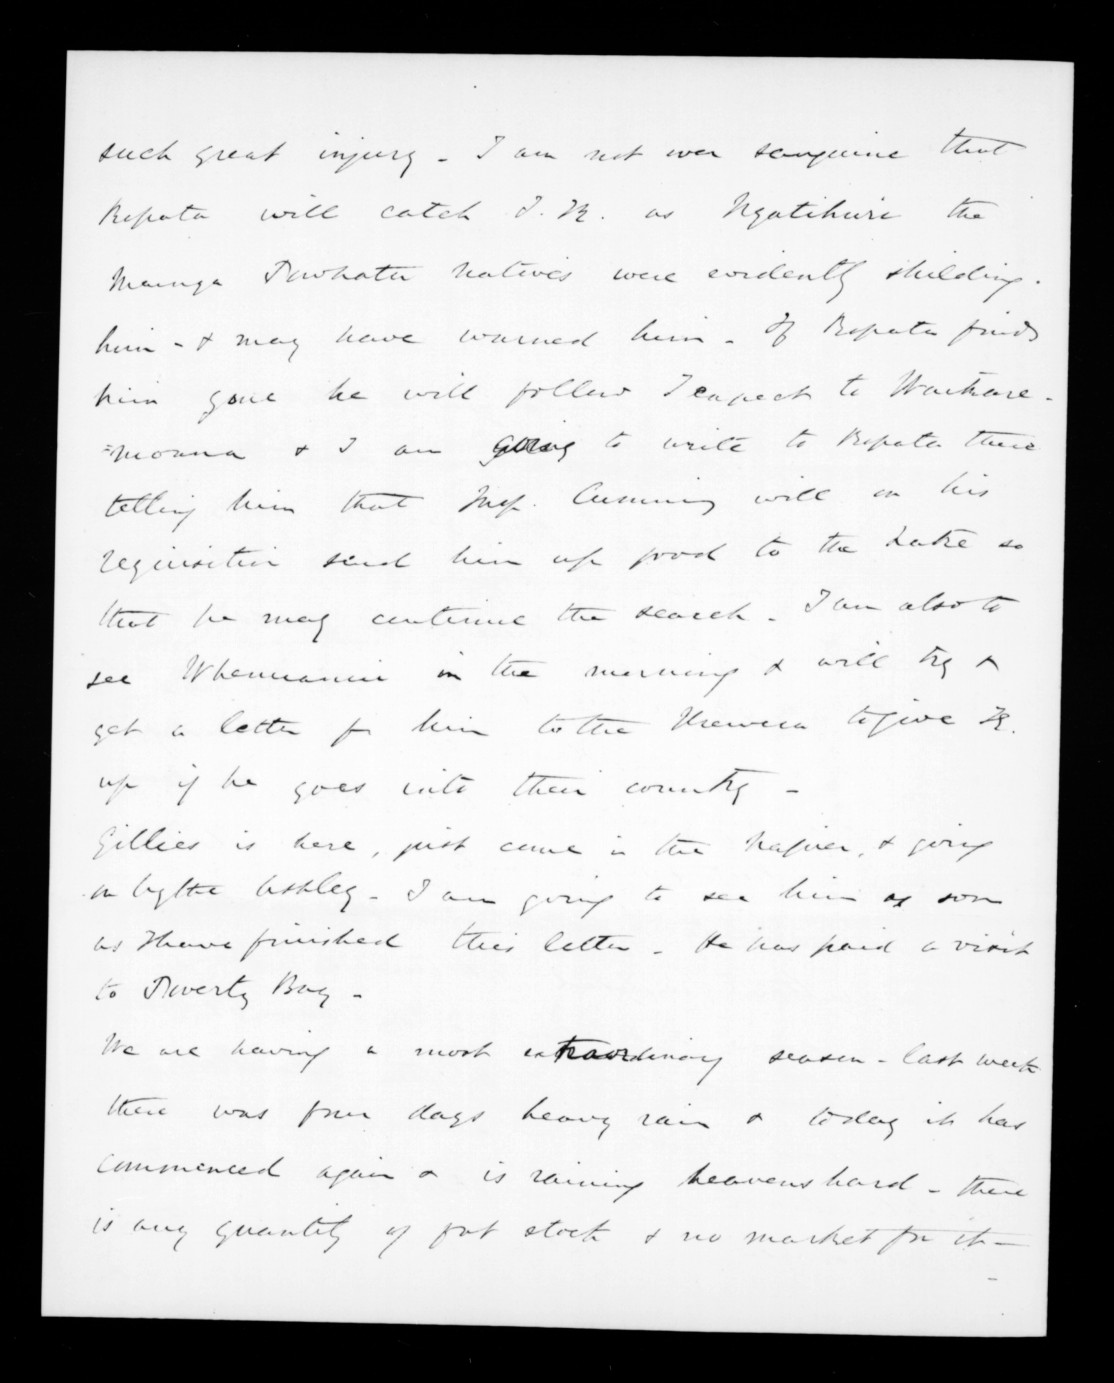 such great injury - I am not over sanguine that
Ropata will catch T. K. as Ngatihuri the
Maunga Powhatu natives were evidently shilding
him - & may have warned him - If Ropata finds
him gone he will follow I expect to Waikare-
=moana & I am going to write to Ropata there
telling him that Insp. Cumming will on his
requisition send him up food to the Lake so
that he may continue the search - I am also to
see Whenuanui in the morning & will try &
get a letter fr him to the Urewera to give K.
up if he goes into their country -
Gillies is here, just come in the Napier, & going
on by the Ashley - I am going to see him as soon
as I have finished this letter - He has paid a visit
to Poverty Bay -
We are having a most extraordinary season - last week
there was four days heavy rain & today it has
commenced again & is raining heavens hard - there
is any quantity of fat stock & no market for it -